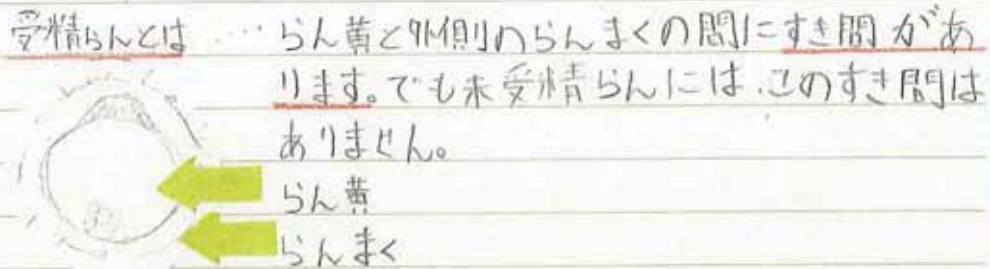 受精らんとは … らん黄と外側のらんまくの間にすき間があ
ります。でも未受精らんには、このすき間は
ありません。
らん黄
らんまく